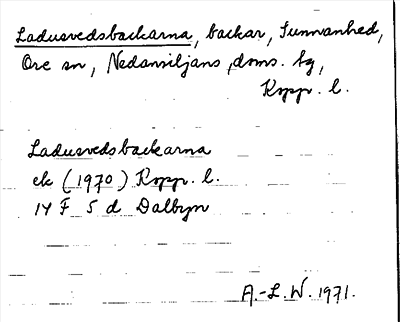 Ladusvedsbackarna, backar, Sunnanhed,
Ore sn, Nedansiljans doms. hg,
Kopp. l.
Ladusvedsbackarna
ek (1970) Kopp. l.
14 F 5 d Dalbyn
A.-L. W. 1971.